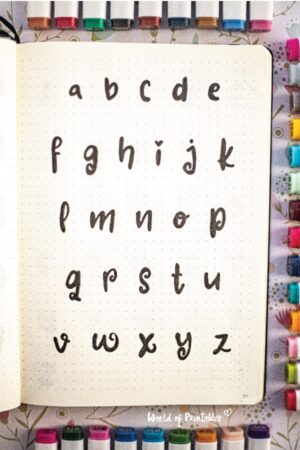 a b c d e
f g h i j k
l m n o p
q r s t u
v w x y z
World of Printables